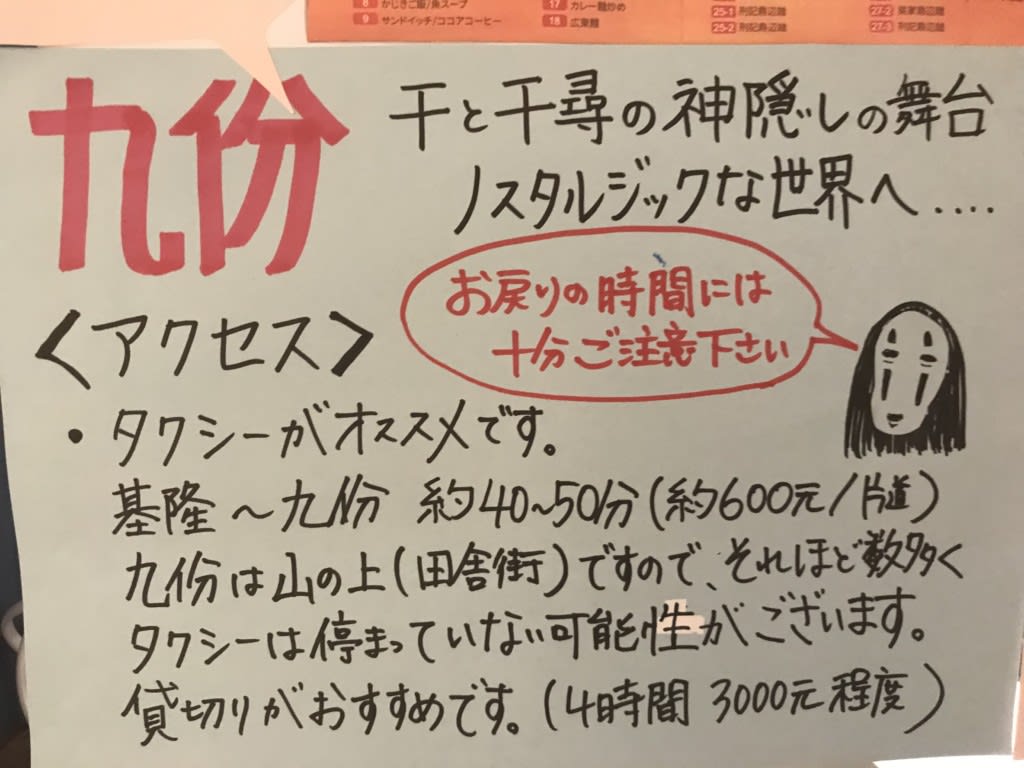 8 かじきご飯/魚スープ
9 サンドイッチ/ココアコーヒー
17 カレー麺炒め
18 広東麺
25-1 刑記鳥辺麺
25-2 刑記鳥辺麺
27-2 栄家鳥辺麺
27-3 刑記鳥辺麺
九份
千と千尋の神隠しの舞台
ノスタルジックな世界へ....
お戻りの時間には
十分ご注意下さい
〈アクセス〉
・タクシーがオススメです。
基隆～九份 約40~50分(約600元/片道)
九份は山の上(田舎街)ですので、それほど数多く
タクシーは停まっていない可能性がございます。
貸切りがおすすめです。(4時間 3000元程度)